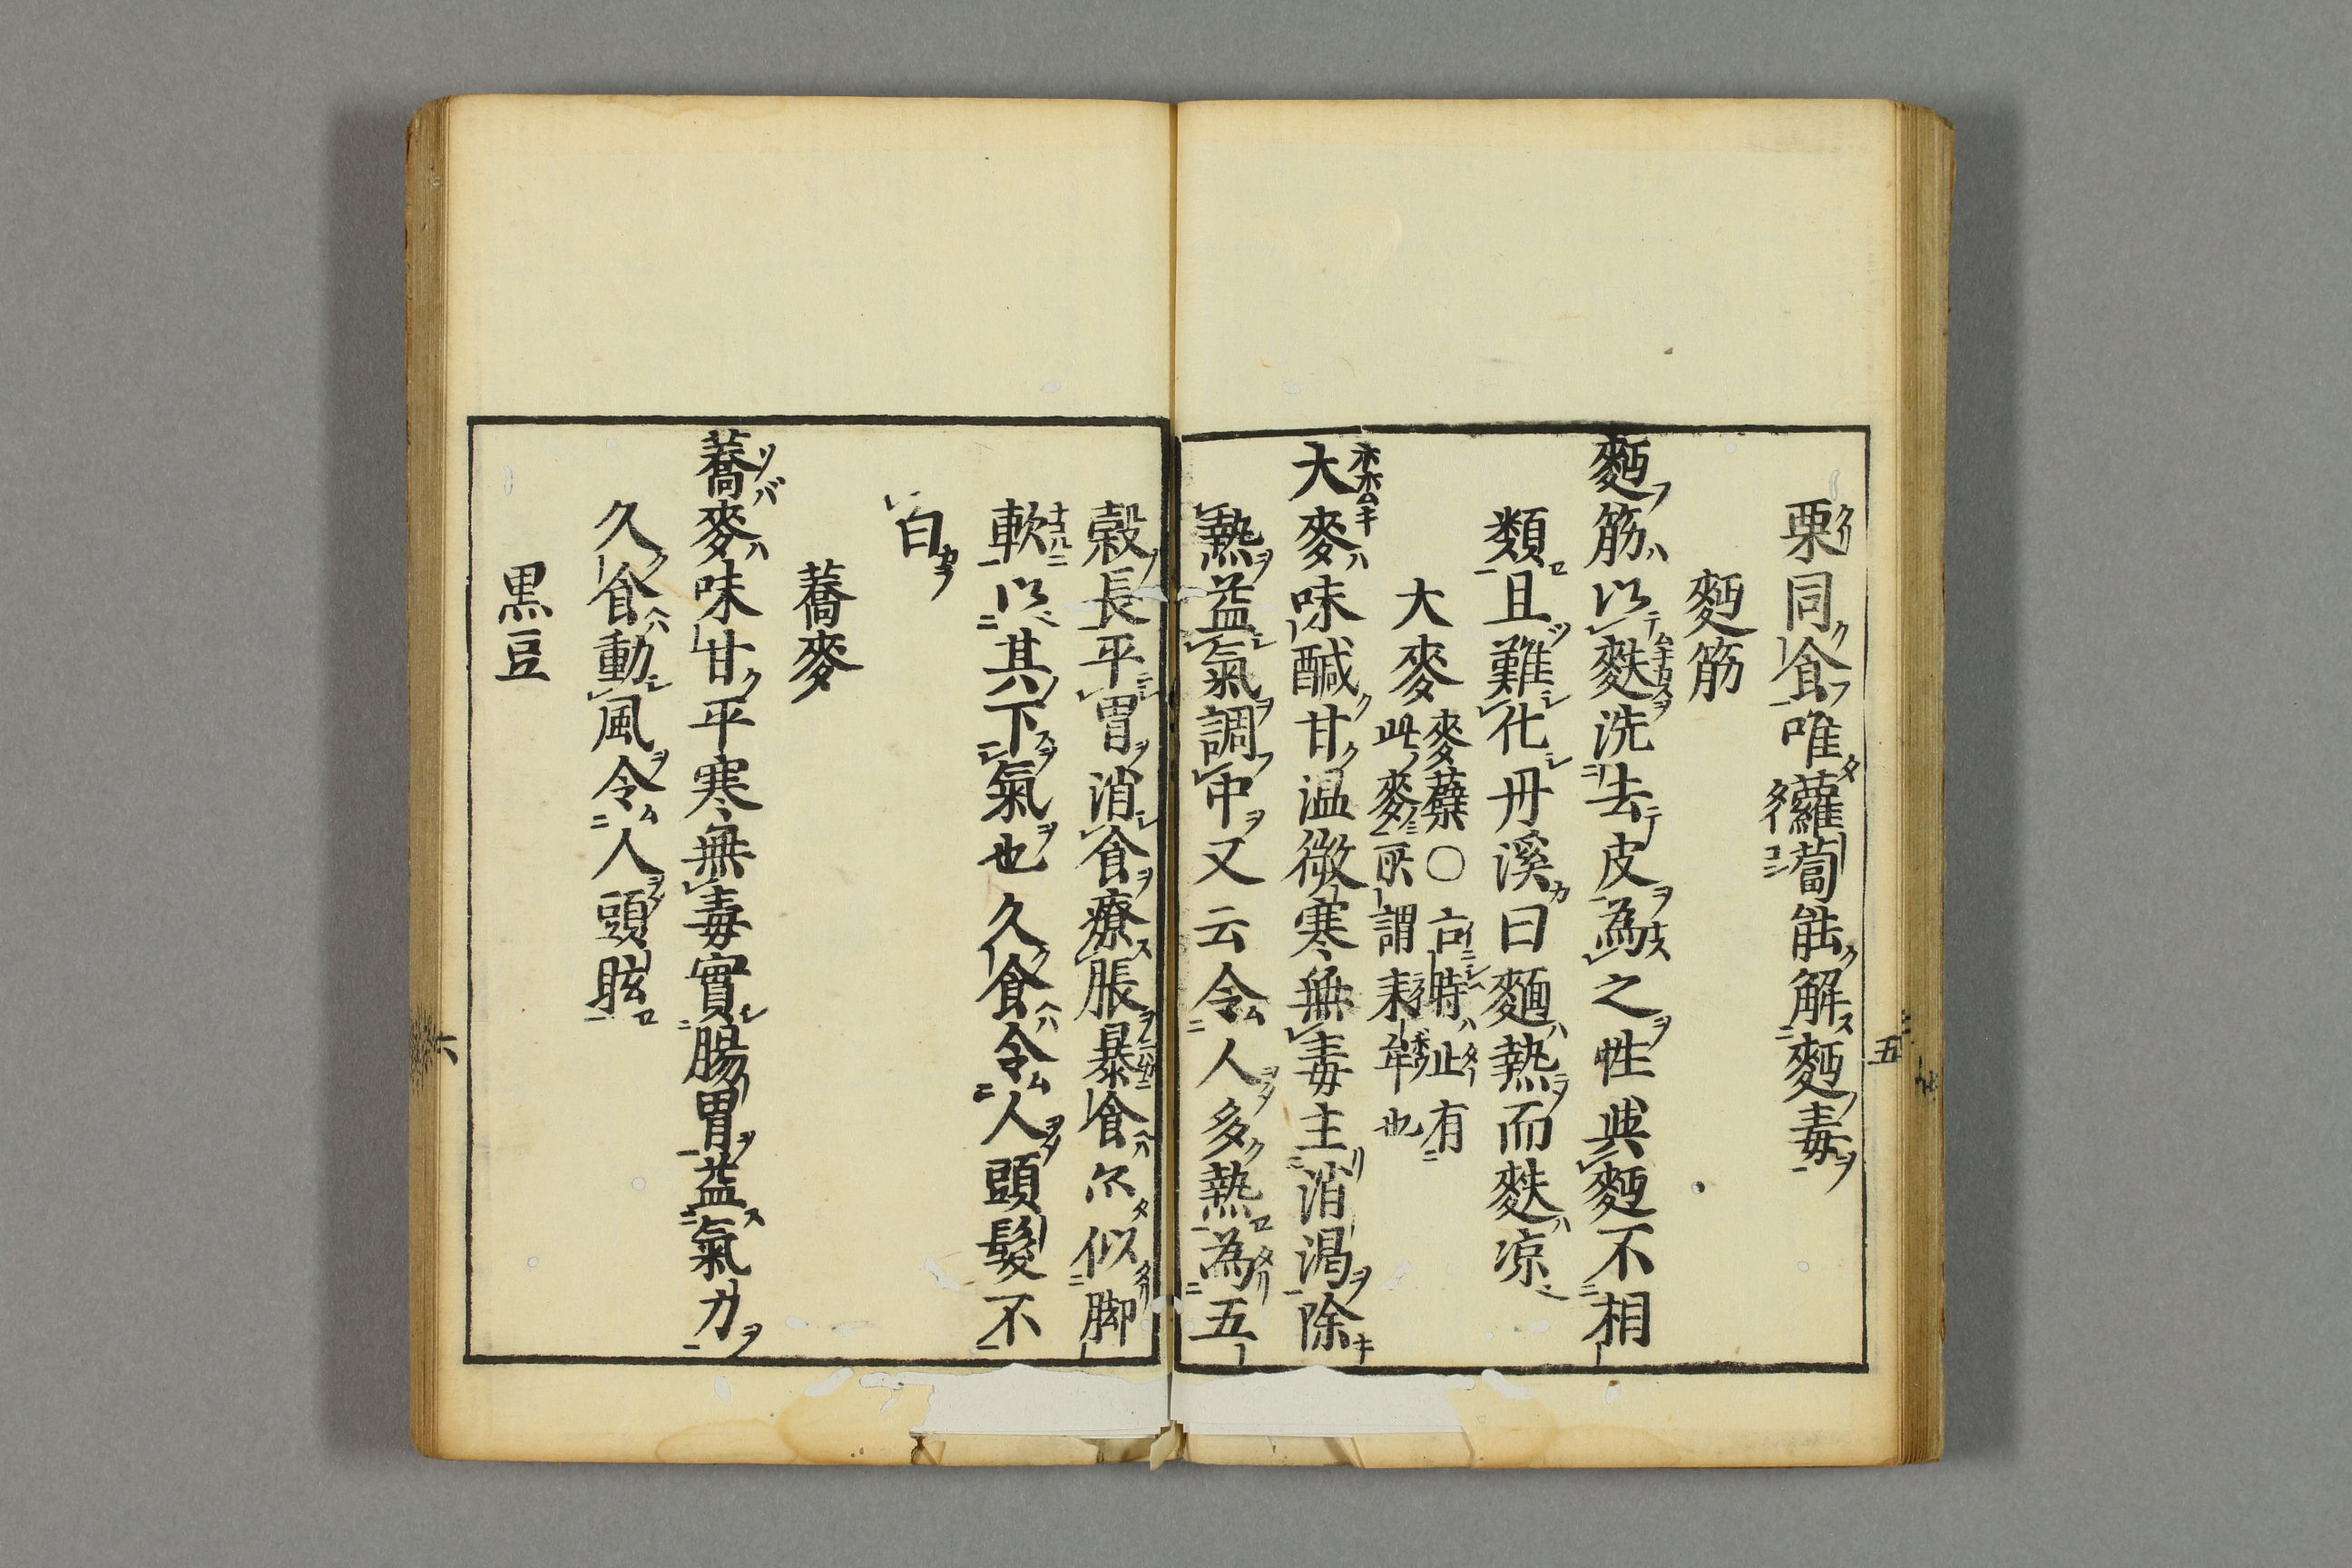 栗同食唯蘿蔔能解麪毒
麪筋
麪筋以麩洗去皮為之性與麪不相
類且難化丹溪曰麵熱而麩凉
大麥麥蘖〇古時止有
此麥所謂来牟也
大麥味醎甘温微寒無毒主消渴除
熱益氣調中又云令人多熱為五
穀長平胃消食療脹暴食尓似脚
軟以其下氣也久食令人頭髮不
白
蕎麥
蕎麥味甘平寒無毒實腸胃益氣力
久食動風令人頭眩
黒豆
五
六